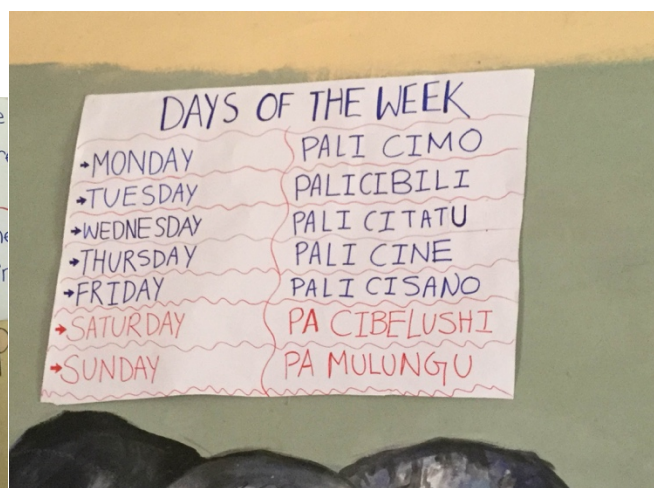 DAYS OF THE WEEK
→MONDAY PALI CIMO
→TUESDAY PALICIBILI
→WEDNESDAY PALI CITATU
→THURSDAY PALI CINE
→FRIDAY PALI CISANO
→SATURDAY PA CIBELUSHI
→SUNDAY PA MULUNGU